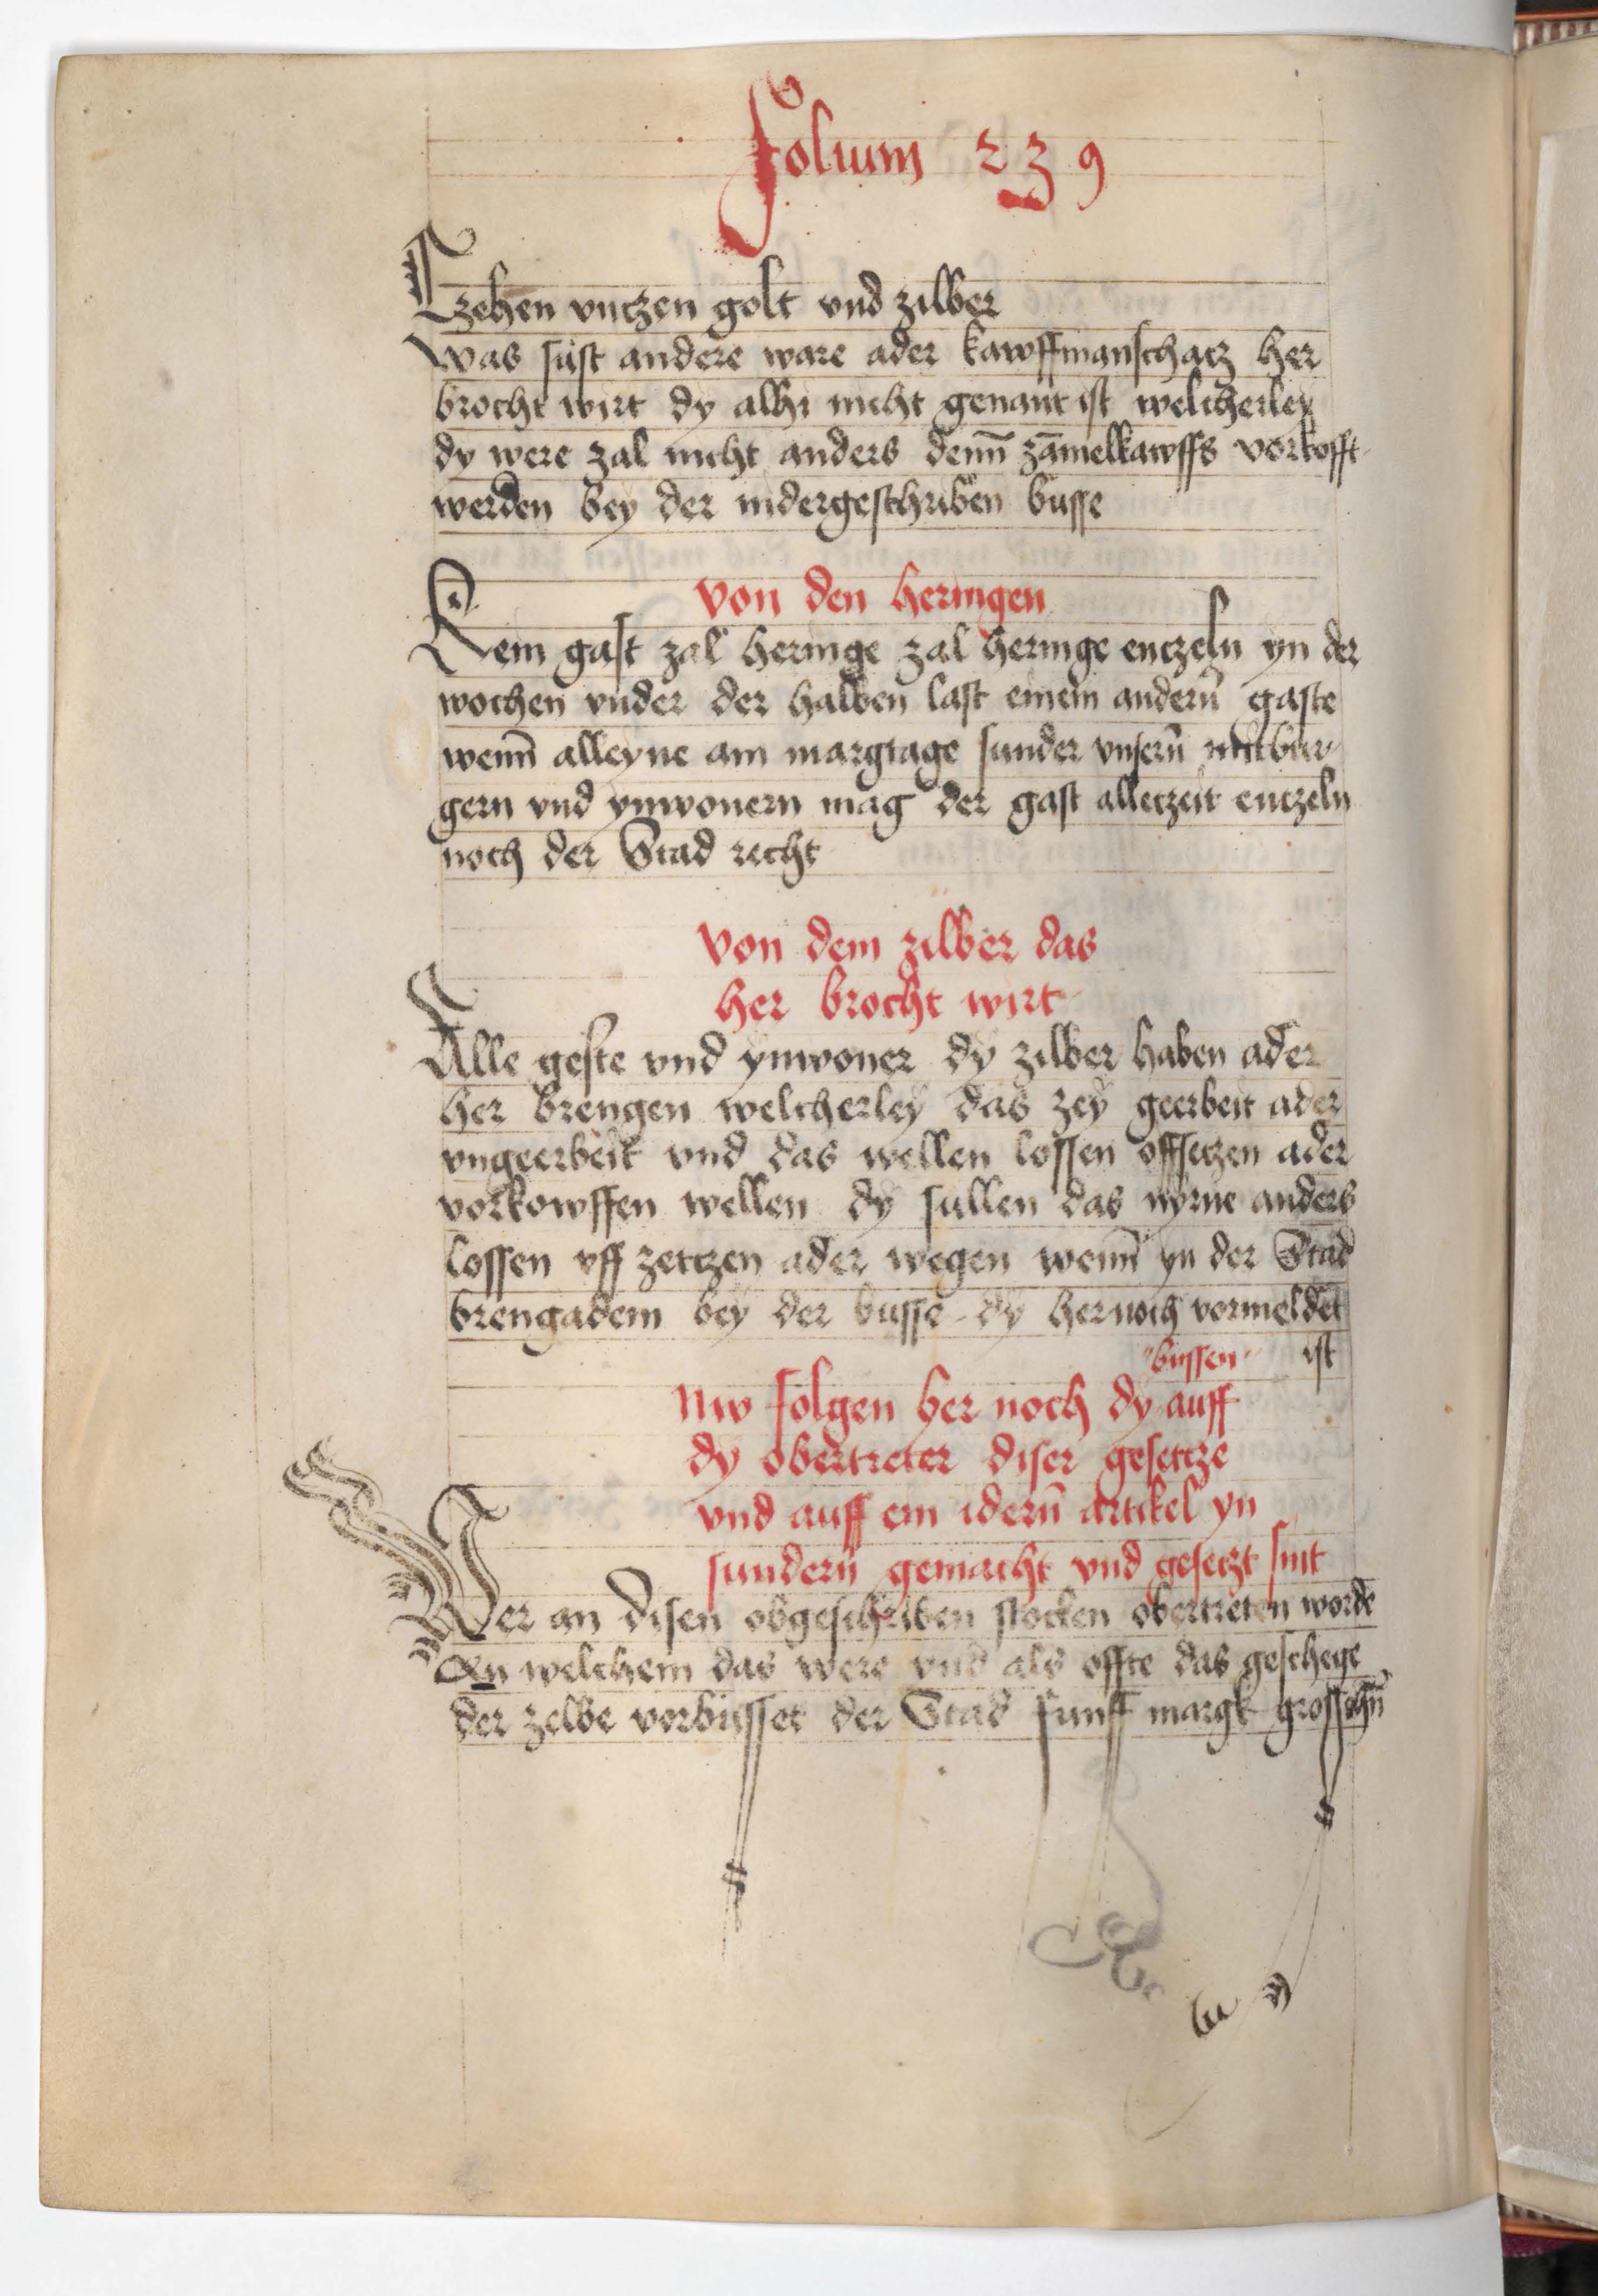 Folium 239
Czehen vnczen golt vnd zilber
Was sust andere ware ader kawffmanschacz her
brocht wirt dy alhi nicht genant ist welcherley
dy were zal nicht anders denn̄ zāmelkawffs vorkofft
werden bey der nidergeschriben busse
Von den heringen
Kein gast zal heringe zal heringe enczeln yn der
wochen vnder der halben last einem andern̄ gaste
wenn̄ alleyne am margtage sunder vnsern̄ mitbur-
gern vnd ynwonern mag der gast alleczeit enczeln
noch der Stad recht
Von dem zilber das
her brocht wirt
Alle geste vnd ynwoner dy zilber haben ader
her brengen welcherley das zey geerbeit ader
vngeerbeit vnd das wellen lossen offseczen ader
vorkowffen wellen dy sullen das nyrne anders
lossen vff zettzen ader wegen wenn̄ yn der Stad
brengadem bey der busse dy hernoch vormeldet
ist
bussen
Nw folgen her noch dy auff
dy obertreter diser gesettze
vnd auff ein idern̄ artikel yn
sundern̄ gemacht vnd gesetzt sint
Wer an disen obgeschriben stocken obertreten worde
An welchem das were vnd als offte das geschege
der zelbe vorbusset der Stad funff margk grosschn̄